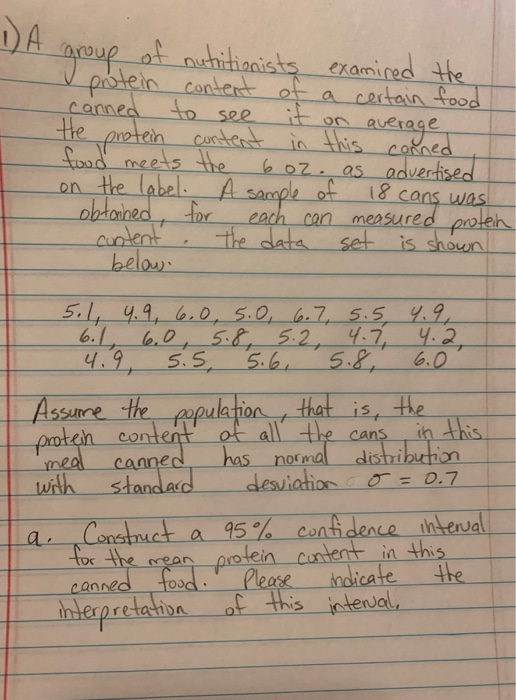 1) A group of nutritionists examined the
protein content of a certain food
canned to see if on average
the protein content in this canned
food meets the 6 oz. as advertised
on the label. A sample of 18 cans was
obtained, for each can measured protein
content. The data set is shown
below.
5.1, 4.9, 6.0, 5.0, 6.7, 5.5, 4.9,
6.1, 6.0, 5.8, 5.2, 4.7, 4.2,
4.9, 5.5, 5.6, 5.8, 6.0
Assume the population, that is, the
protein content of all the cans in this
meal canned has normal distribution
with standard desviation σ = 0.7
a. Construct a 95% confidence interval
for the mean protein content in this
canned food. Please indicate the
interpretation of this interval.